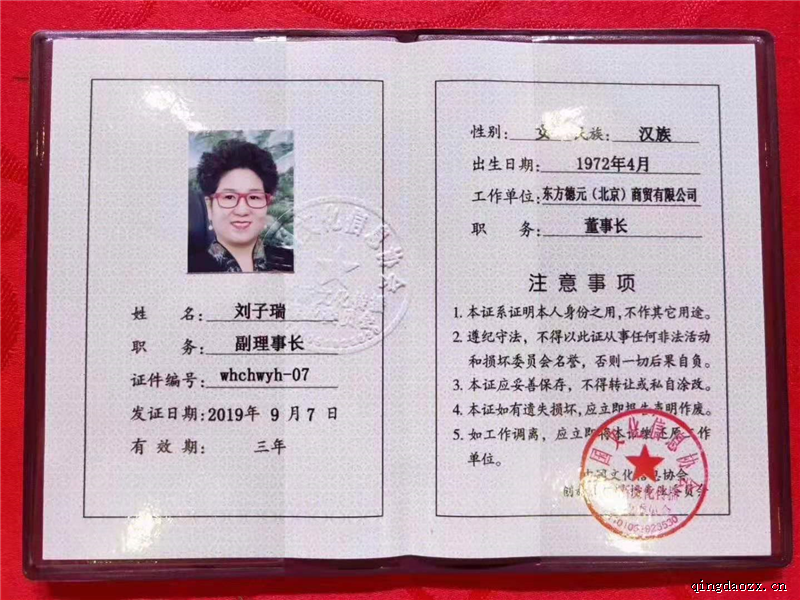 姓 名：刘子瑞
职 务：副理事长
证件编号：whchwyh-07
发证日期：2019年 9 月 7 日
有 效 期： 三年
性别： 女 民族： 汉族
出生日期： 1972年4月
工作单位：东方德元（北京）商贸有限公司
职 务： 董事长
注 意 事 项
1. 本证系证明本人身份之用，不作其它用途。
2. 遵纪守法，不得以此证从事任何非法活动
和损坏委员会名誉，否则一切后果自负。
3. 本证应妥善保存，不得转让或私自涂改。
4. 本证如有遗失损坏，应立即报失声明作废。
5. 如工作调离，应立即将本证缴还原工作
单位。
中国文化信息协会
qingdaozx.cn